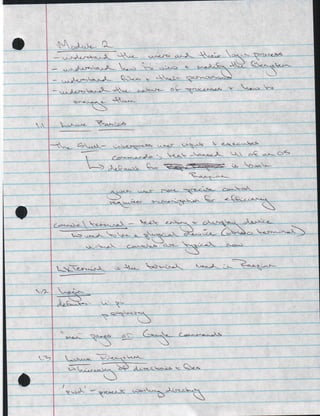 Module 2
- understand the users and their login process
- understand how to view & modify the filesystem
- understand files & their permissions
- understand the nature of processes & how to
manage them
1.1 Linux Basics
The Shell - interprets user input & executes
commands, text based UI of an OS
↳ default for is bash
gives user more precise control
requires memorization for efficiency
Console/terminal - text entry & display device
↳ used to be a physical device
virtual consoles are typical now
LXTerminal is the terminal used in Raspian
1.2 Login
default: u: pi
p: raspberry
'man' pages or Google commands
1.3 Linux Filesystem
↳ hierarchy of directories & files
'pwd' - present working directory